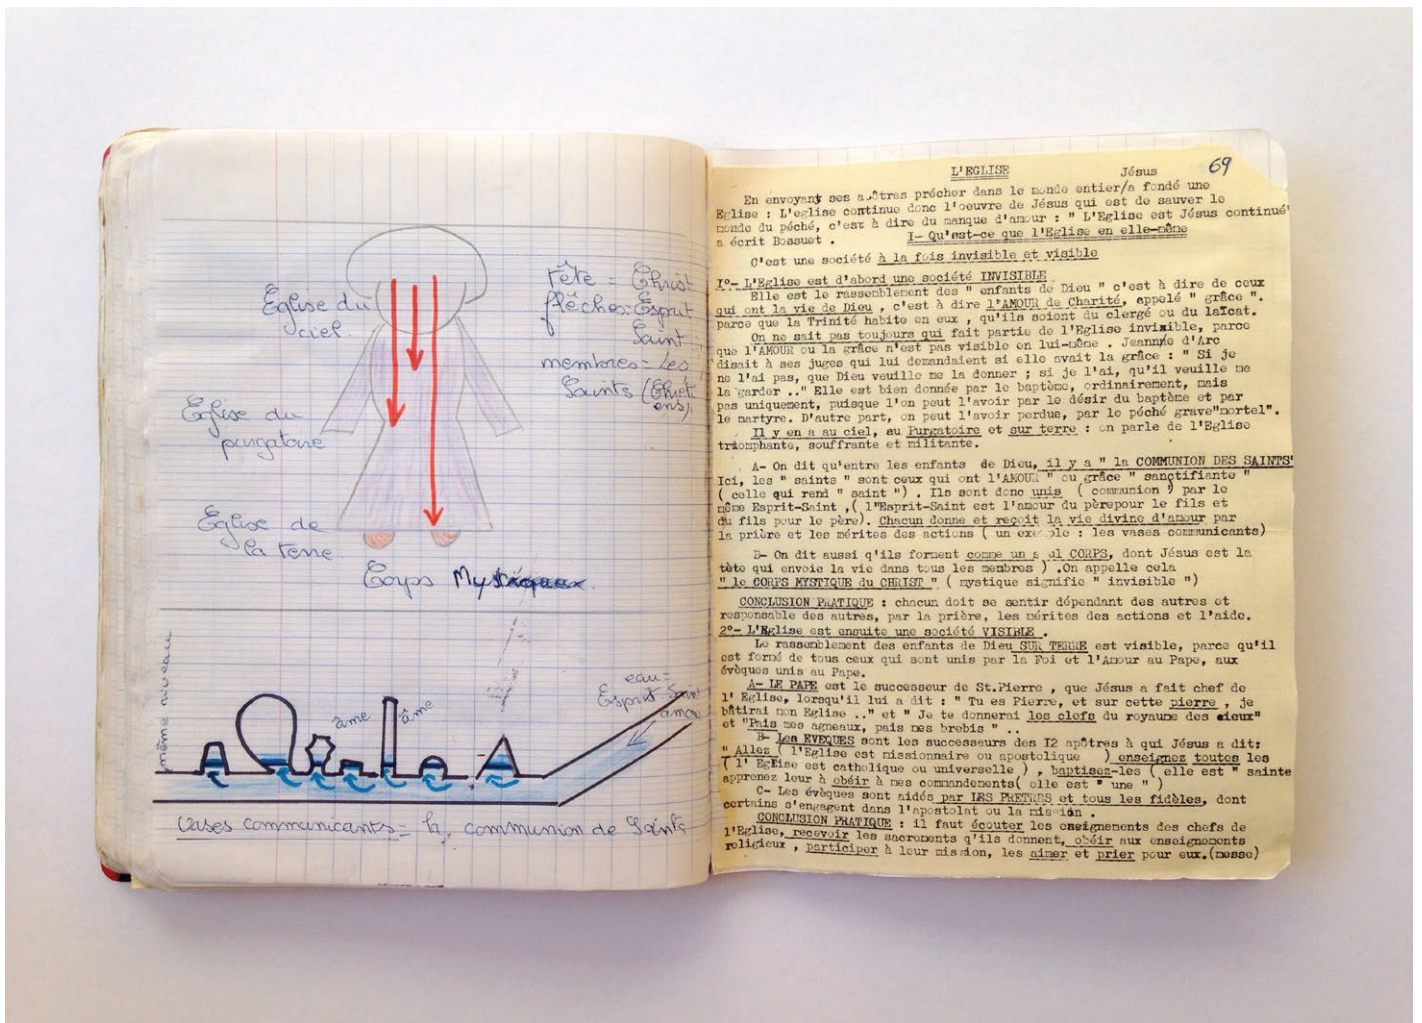 Eglise du
ciel.
tête = Christ
flêches: Esprit
Saint
membres = Les
Saints (Chréti
ens)
Eglise du
purgatoire
Eglise de
la terre
Corps Mystique
même niveau
âme
âme
eau =
Esprit-Saint
amour
Vases communicants = la communion de Saints
69
L'EGLISE Jésus
En envoyant ses apôtres précher dans le monde entier/a fondé une
Eglise : L'eglise continue donc l'oeuvre de Jésus qui est de sauver le
monde du péché, c'est à dire du manque d'amour : " L'Eglise est Jésus continué"
a écrit Bossuet . I- Qu'est-ce que l'Eglise en elle-même
C'est une société à la fois invisible et visible
I°- L'Eglise est d'abord une société INVISIBLE
Elle est le rassemblement des " enfants de Dieu " c'est à dire de ceux
qui ont la vie de Dieu , c'est à dire l'AMOUR de Charité, appelé " grâce ".
parce que la Trinité habite en eux , qu'ils soient du clergé ou du laïcat.
On ne sait pas toujours qui fait partie de l'Eglise invisible, parce
que l'AMOUR ou la grâce n'est pas visible en lui-même . Jeanne d'Arc
disait à ses juges qui lui demandaient si elle avait la grâce : " Si je
ne l'ai pas, que Dieu veuille me la donner ; si je l'ai, qu'il veuille me
la garder .." Elle est bien donnée par le baptème, ordinairement, mais
pas uniquement, puisque l'on peut l'avoir par le désir du baptème et par
le martyre. D'autre part, on peut l'avoir perdue, par le péché grave"mortel".
Il y en a au ciel, au Purgatoire et sur terre : on parle de l'Eglise
triomphante, souffrante et militante.
A- On dit qu'entre les enfants de Dieu, il y a " la COMMUNION DES SAINTS"
Ici, les " saints " sont ceux qui ont l'AMOUR " ou grâce " sanctifiante "
( celle qui rend " saint ") . Ils sont donc unis ( communion ) par le
même Esprit-Saint ,( l'Esprit-Saint est l'amour du pèrepour le fils et
du fils pour le père). Chacun donne et reçoit la vie divine d'amour par
la prière et les mérites des actions ( un exemple : les vases communicants)
B- On dit aussi qu'ils forment comme un seul CORPS, dont Jésus est la
tète qui envoie la vie dans tous les membres ) .On appelle cela
" le CORPS MYSTIQUE du CHRIST " ( mystique signifie " invisible ")
CONCLUSION PRATIQUE : chacun doit se sentir dépendant des autres et
responsable des autres, par la prière, les mérites des actions et l'aide.
2°- L'Eglise est ensuite une société VISIBLE .
Le rassemblement des enfants de Dieu SUR TERRE est visible, parce qu'il
est formé de tous ceux qui sont unis par la Foi et l'Amour au Pape, aux
évèques unis au Pape.
A- LE PAPE est le successeur de St.Pierre , que Jésus a fait chef de
l' Eglise, lorsqu'il lui a dit : " Tu es Pierre, et sur cette pierre , je
bâtirai mon Eglise .." et " Je te donnerai les clefs du royaume des cieux"
et "Pais mes agneaux, pais mes brebis " ..
B- Les EVEQUES sont les successeurs des I2 apôtres à qui Jésus a dit:
" Allez ( l'Eglise est missionnaire ou apostolique ) enseignez toutes les
( l' Eglise est catholique ou universelle ) , baptisez-les ( elle est " sainte
apprenez leur à obéir à mes commandements( elle est " une " )
C- Les évèques sont aidés par LES PRETRES et tous les fidèles, dont
certains s'engagent dans l'apostolat ou la mission .
CONCLUSION PRATIQUE : il faut écouter les enseignements des chefs de
l'Eglise, recevoir les sacrements qu'ils donnent, obéir aux enseignements
religieux , participer à leur mission, les aimer et prier pour eux.(messe)